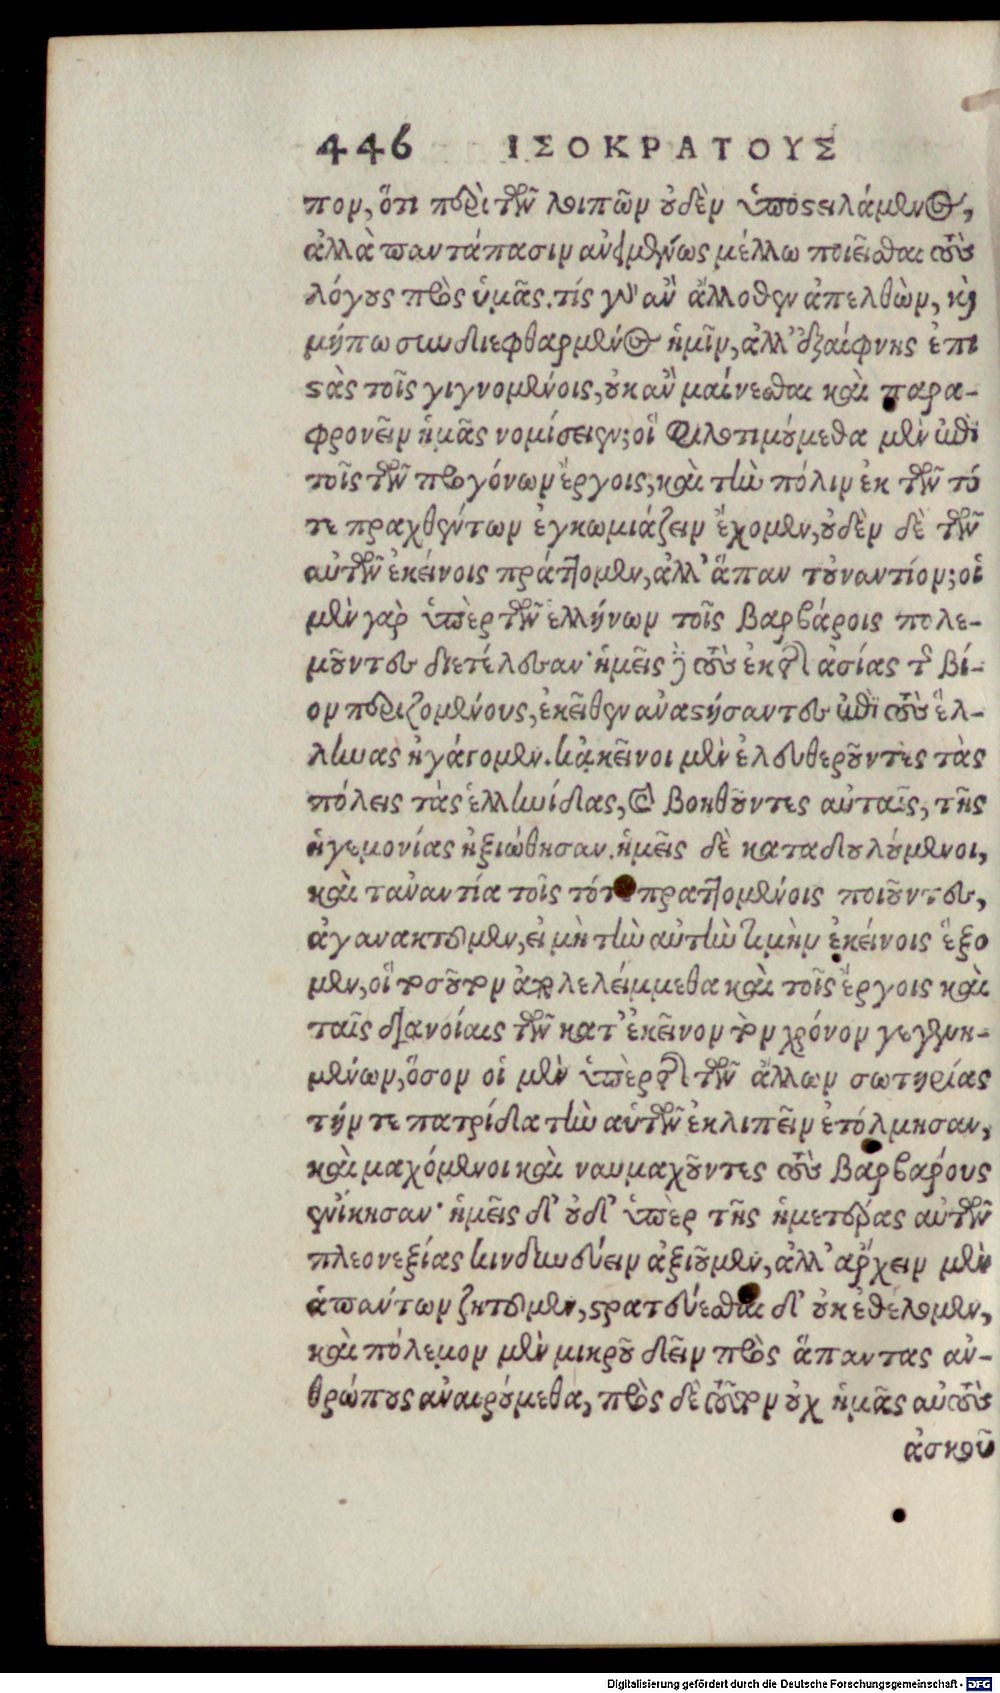 446 ΙΣΟΚΡΑΤΟΥΣ
πον, ὅτι περὶ τῶν λοιπῶν οὐδὲν ὑποστειλάμενος,
ἀλλὰ παντάπασιν ἀνειμένως μέλλω ποιεῖσθαι τοὺς
λόγους πρὸς ὑμᾶς. τίς γὰρ ἂν ἄλλοθεν ἀπελθὼν, καὶ
μήπω συνδιεφθαρμένος ἡμῖν, ἀλλ' ἐξαίφνης ἐπι
στὰς τοῖς γιγνομένοις, οὐκ ἂν μαίνεσθαι καὶ παρα-
φρονεῖν ἡμᾶς νομίσειεν; οἳ φιλοτιμούμεθα μὲν ἐπὶ
τοῖς τῶν προγόνων ἔργοις, καὶ τὴν πόλιν ἐκ τῶν τό
τε πραχθέντων ἐγκωμιάζειν ἔχομεν, οὐδὲν δὲ τῶν
αὐτῶν ἐκείνοις πράττομεν, ἀλλ' ἅπαν τοὐναντίον; οἱ
μὲν γὰρ ὑπὲρ τῶν ἑλλήνων τοῖς βαρβάροις πολε-
μοῦντες διετέλεσαν· ἡμεῖς δὲ τοὺς ἐκ τῆς ἀσίας τὸν βί-
ον ποριζομένους, ἐκεῖθεν ἀναστήσαντες ἐπὶ τοὺς ἕλ-
ληνας ἠγάγομεν. κἀκεῖνοι μὲν ἐλευθεροῦντες τὰς
πόλεις τὰς ἑλληνίδας, καὶ βοηθοῦντες αὐταῖς, τῆς
ἡγεμονίας ἠξιώθησαν. ἡμεῖς δὲ καταδουλούμενοι,
καὶ τἀναντία τοῖς τότε πραττομένοις ποιοῦντες,
ἀγανακτοῦμεν, εἰ μὴ τὴν αὐτὴν τιμὴν ἐκείνοις ἕξο
μεν, οἳ τοσοῦτον ἀπολελείμμεθα καὶ τοῖς ἔργοις καὶ
ταῖς διανοίαις τῶν κατ' ἐκεῖνον τὸν χρόνον γεγενη-
μένων, ὅσον οἱ μὲν ὑπὲρ τῆς τῶν ἄλλων σωτηρίας
τήν τε πατρίδα τὴν αὑτῶν ἐκλιπεῖν ἐτόλμησαν,
καὶ μαχόμενοι καὶ ναυμαχοῦντες τοὺς βαρβάρους
ἐνίκησαν· ἡμεῖς δ' οὐδ' ὑπὲρ τῆς ἡμετέρας αὐτῶν
πλεονεξίας κινδυνεύειν ἀξιοῦμεν, ἀλλ' ἄρχειν μὲν
ἁπάντων ζητοῦμεν, στρατεύεσθαι δ' οὐκ ἐθέλομεν,
καὶ πόλεμον μὲν μικροῦ δεῖν πρὸς ἅπαντας ἀν-
θρώπους ἀναιρούμεθα, πρὸς δὲ τοῦτον οὐχ ἡμᾶς αὐτοὺς
ἀσκοῦ
Digitalisierung gefördert durch die Deutsche Forschungsgemeinschaft - DFG